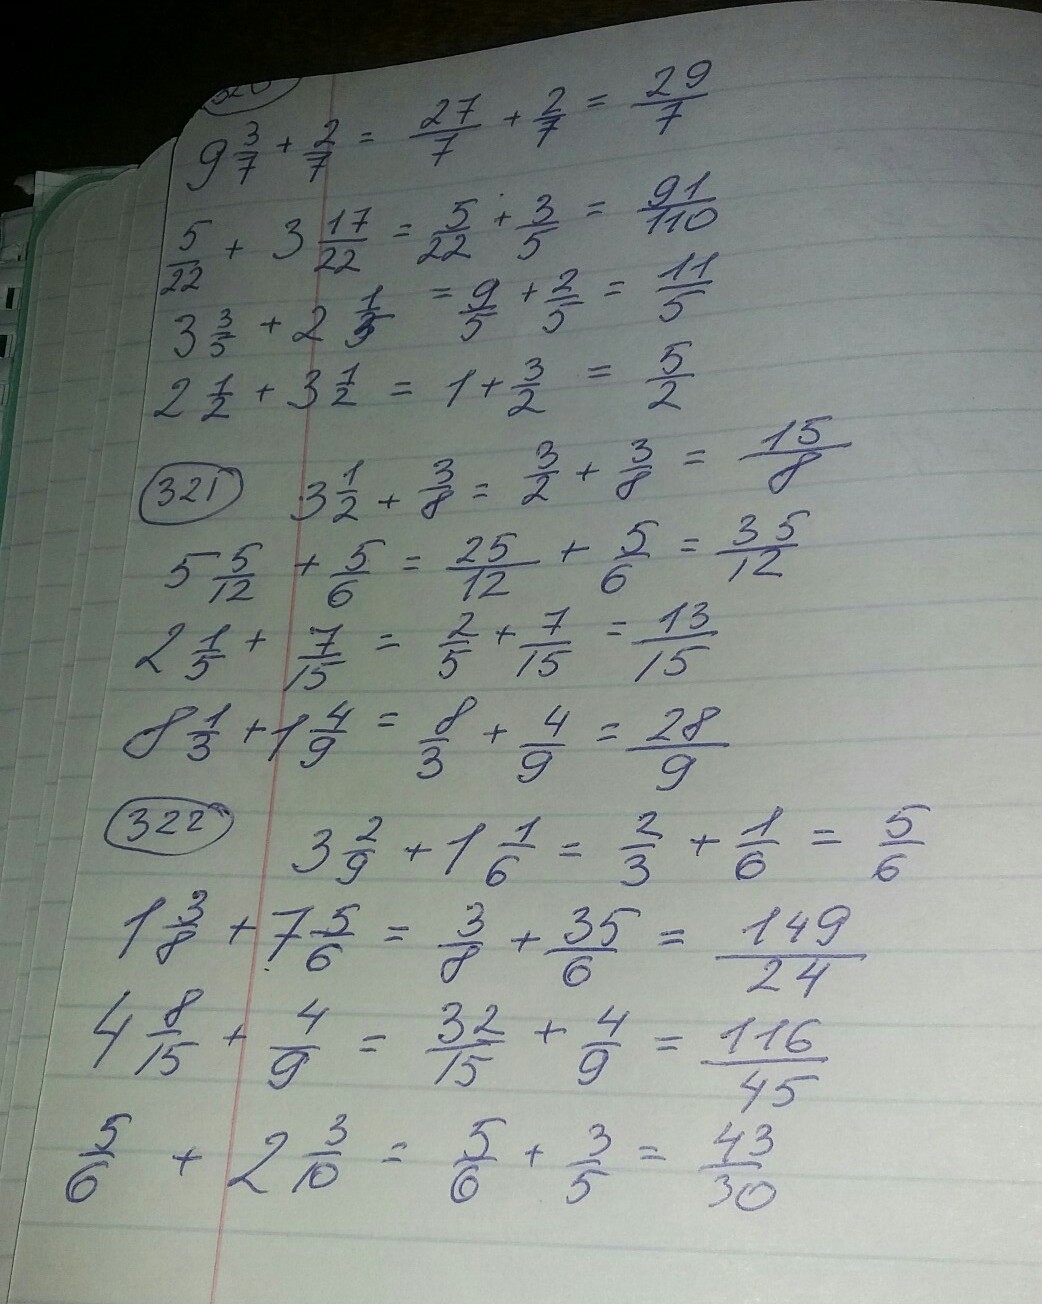 320
9 3/7 + 2/7 = 27/7 + 2/7 = 29/7
5/22 + 3 17/22 = 5/22 + 3/5 = 91/110
3 3/5 + 2 1/5 = 9/5 + 2/5 = 11/5
2 1/2 + 3 1/2 = 1 + 3/2 = 5/2
321 3 1/2 + 3/8 = 3/2 + 3/8 = 15/8
5 5/12 + 5/6 = 25/12 + 5/6 = 35/12
2 1/5 + 7/15 = 2/5 + 7/15 = 13/15
8 1/3 + 1 4/9 = 8/3 + 4/9 = 28/9
322 3 2/9 + 1 1/6 = 2/3 + 1/6 = 5/6
1 3/8 + 7 5/6 = 3/8 + 35/6 = 149/24
4 8/15 + 4/9 = 32/15 + 4/9 = 116/45
5/6 + 2 3/10 = 5/6 + 3/5 = 43/30